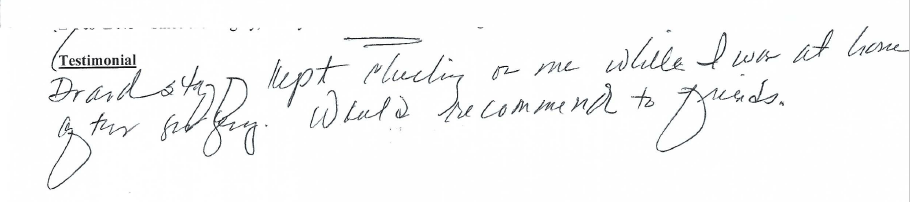 Testimonial
Dr and staff kept checking on me while I was at home
after surgery. Would recommend to friends.